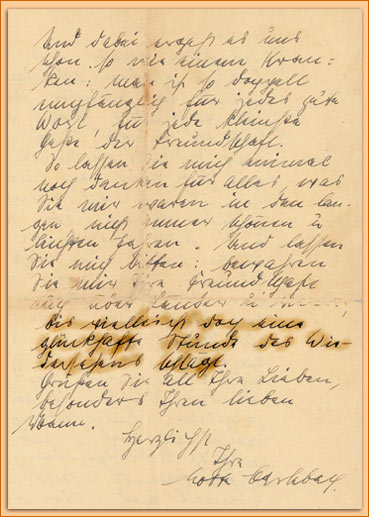 Und dabei ergeht es uns
schon so wie einem Kran=
ken: man ist so doppelt
empfänglich für jedes gute
Wort, für jede kleinste
Geste der Freundschaft.
So lassen Sie mich einmal
noch danken für alles, was
Sie mir waren in den lan-
gen nicht immer schönen 12
Jahren. Und lassen
Sie mich bitten: bewahren
Sie mir Ihre Freundschaft
auch über Länder
bis vielleicht doch eine
glückhafte Stunde des Wie-
dersehens schlägt.
Grüßen Sie all Ihre Lieben,
besonders Ihren lieben
Mann.
Herzlichst
Ihre